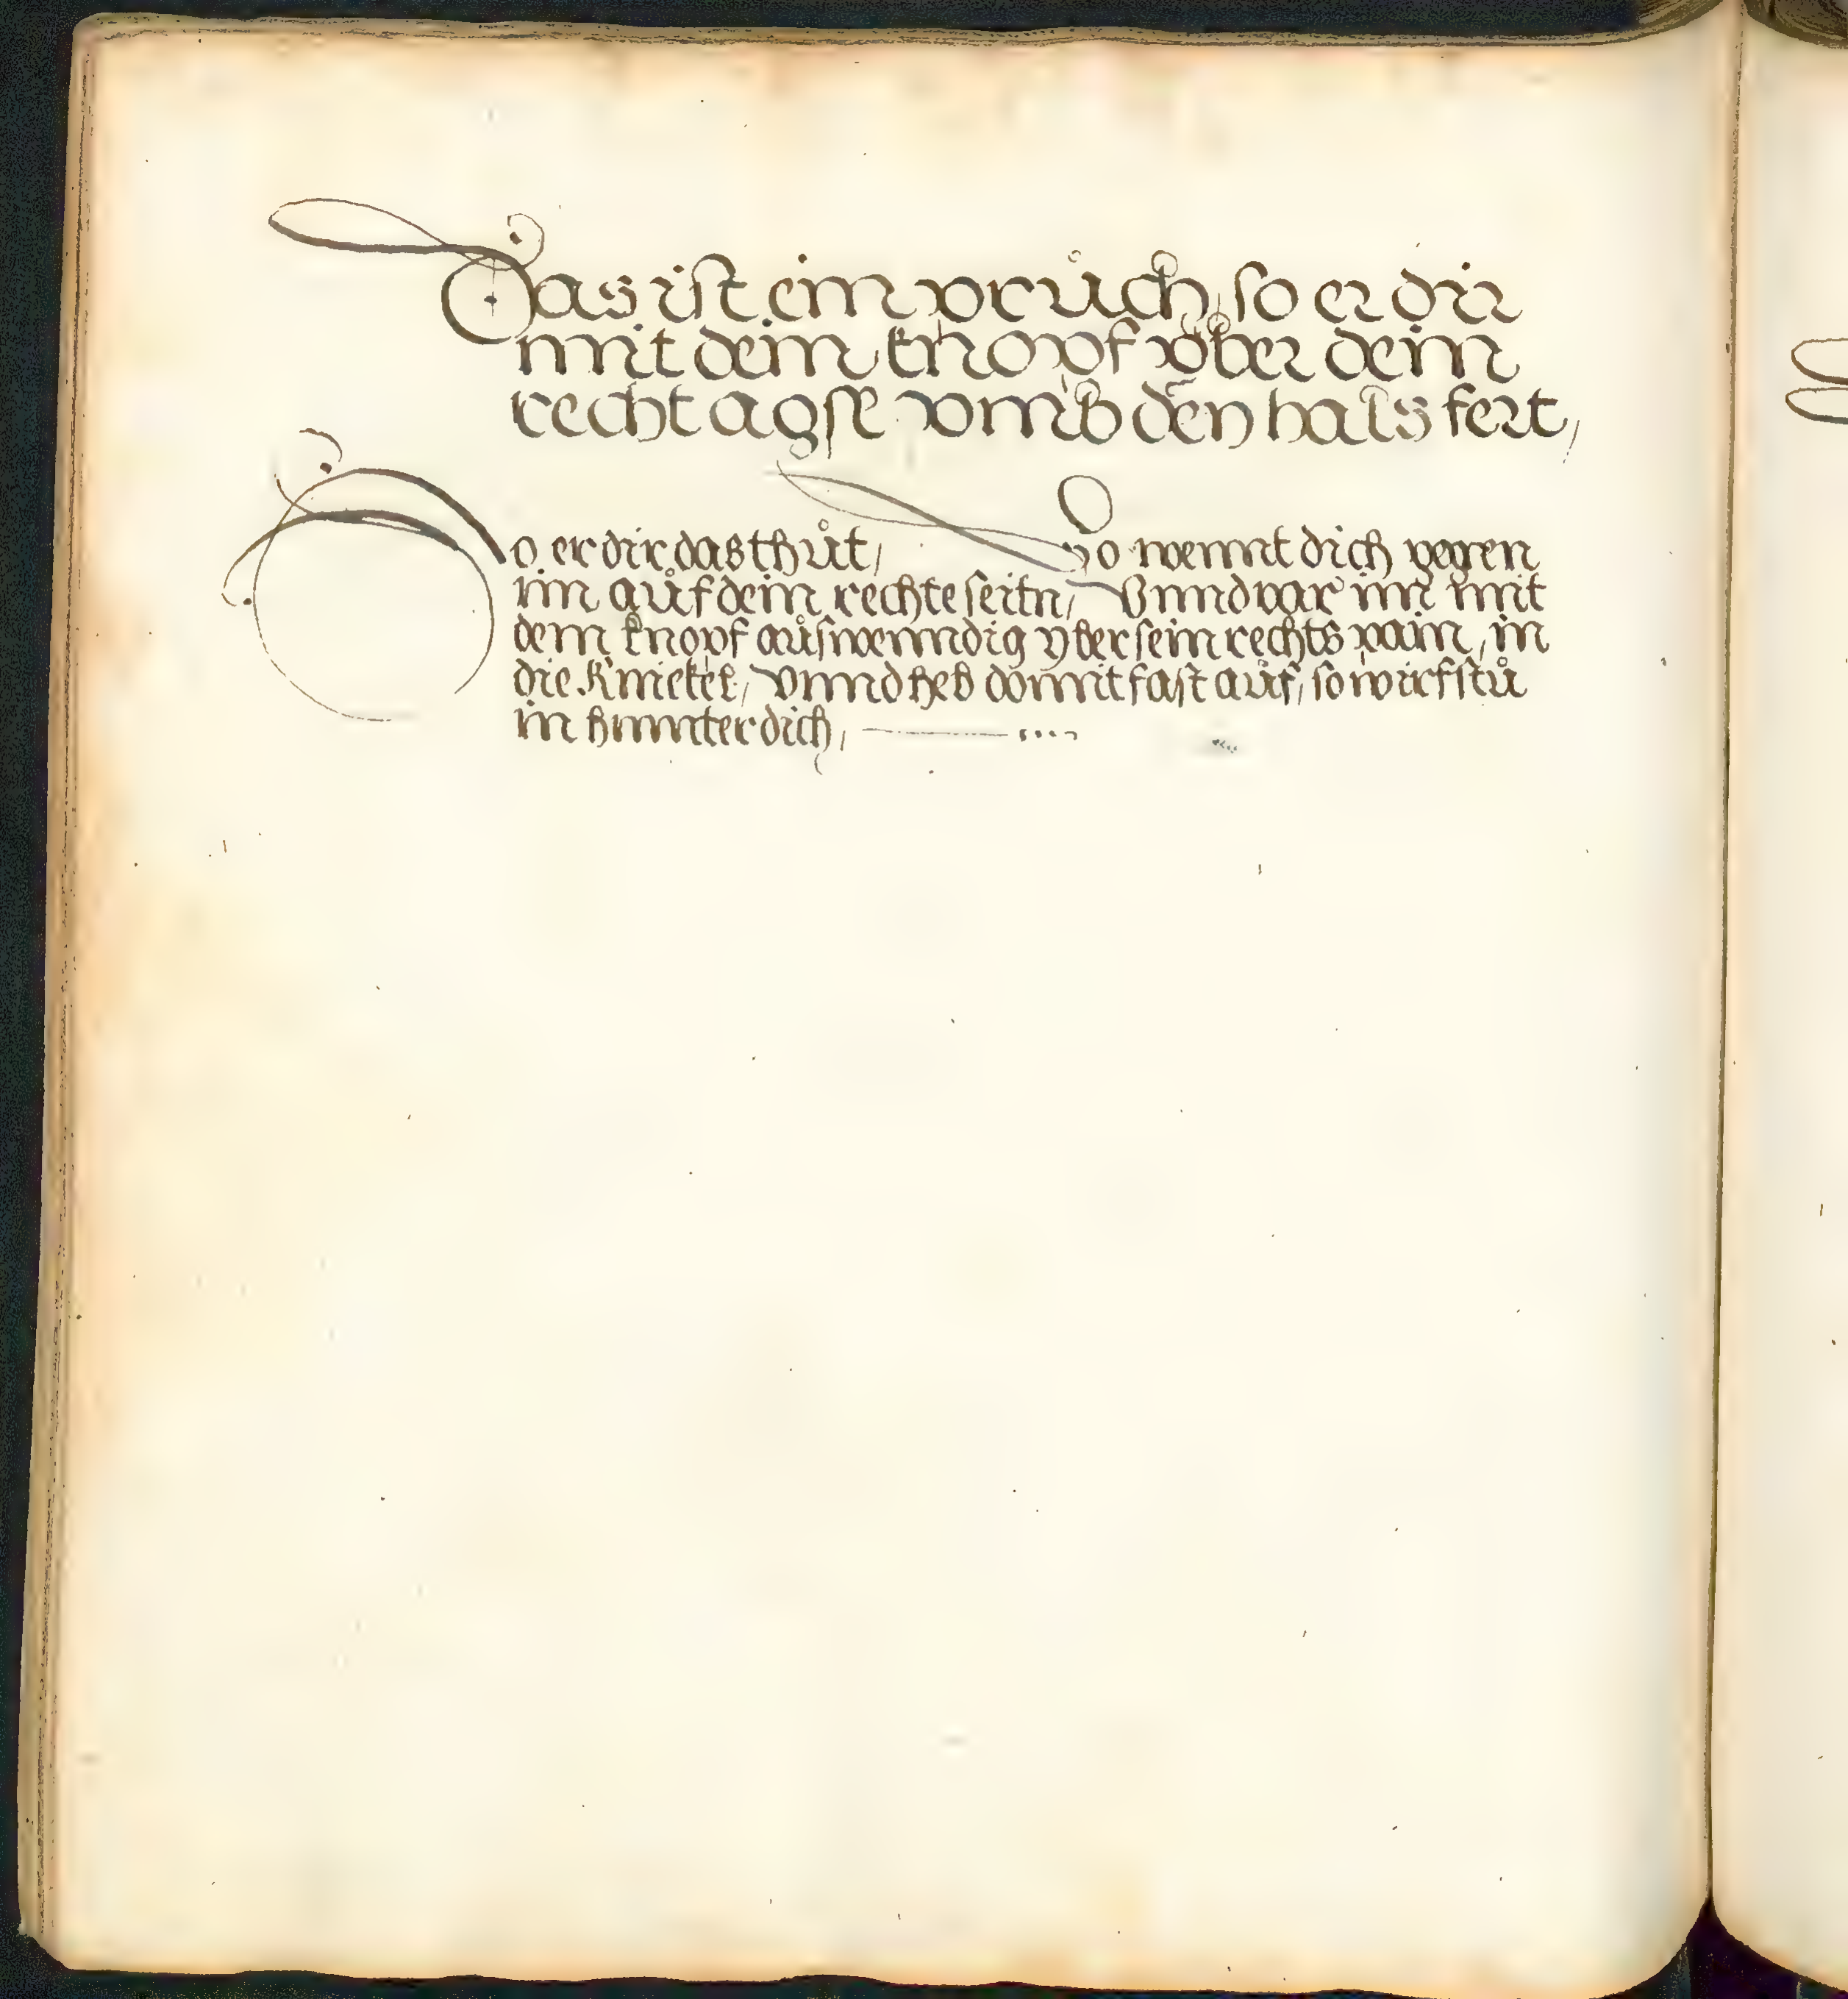 Das ist ein průch, so er dir
mit dem knopf vber dein
recht agsl vmb den hals fert,
So er dir das thůt, So wennt dich gegen
im aůf dein rechte seitn, Vnnd var im mit
dem knopf aůswenndig vber sein rechts pain, in
die kniekel, Vnnd heb domit fast aůf, so wirfstů
in hinnter dich,